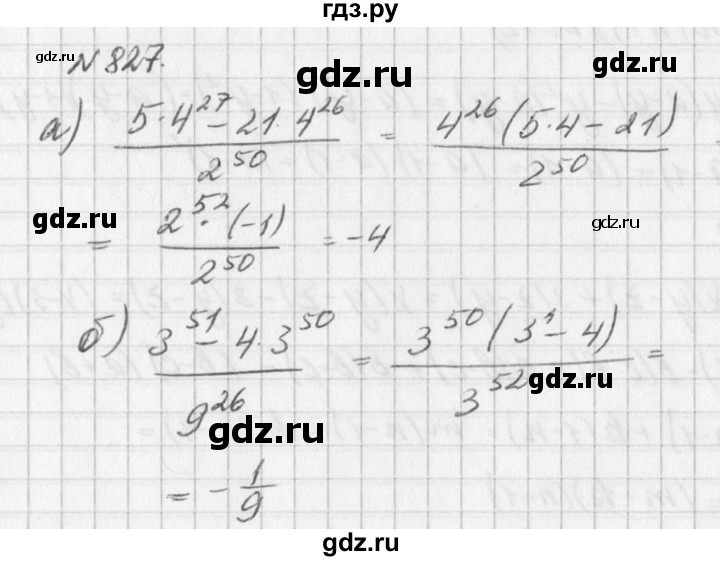 гдз.ру
gdz.ru
№ 827.
gdz.ru
gdz.ru
а) (5·4^27 − 21·4^26)/2^50 = (4^26(5·4 − 21))/2^50
gdz.ru
gdz.ru
= (2^52·(−1))/2^50 = −4
б) (3^51 − 4·3^50)/9^26 = (3^50(3^1 − 4))/3^52 =
gdz.ru
gdz.ru
= −1/9
gdz.ru